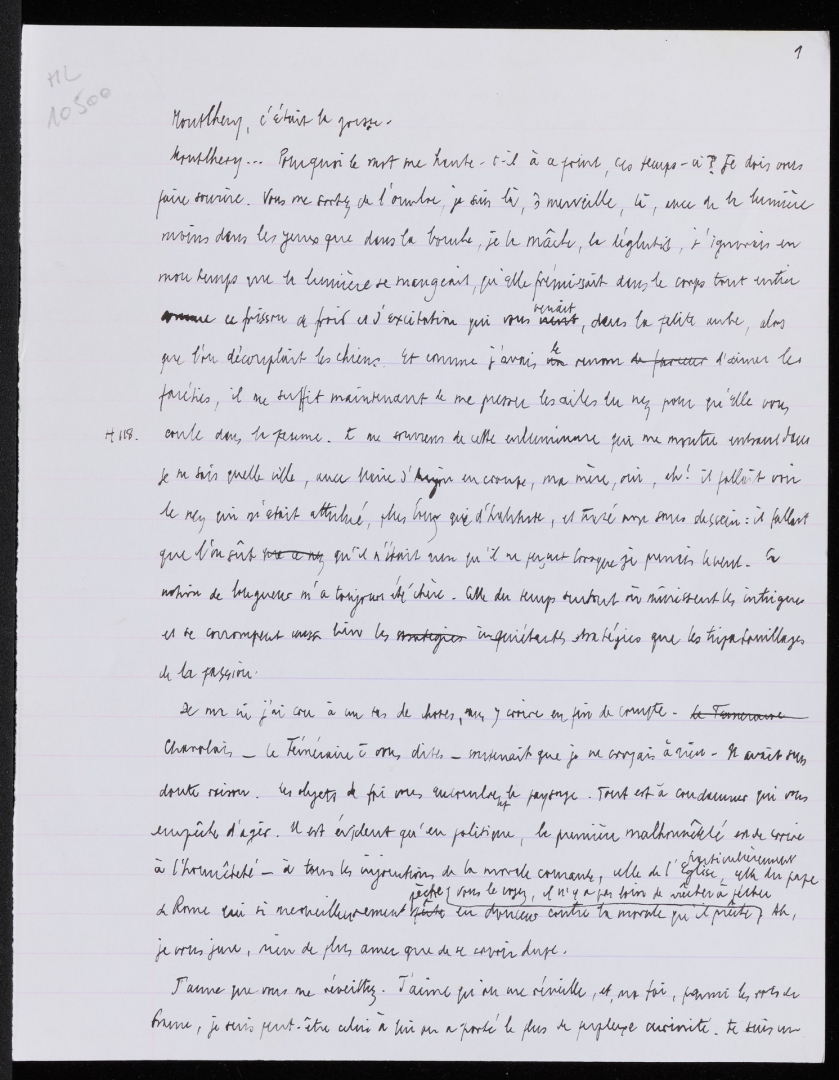 1
ML
10500
Montlhéry, c'était la grosse.
Montlhéry... Pourquoi le mot me hante-t-il à ce point, ces temps-ci ? Je dois vous
faire sourire. Vous me sortez de l'ombre, je suis là, ô merveille, là, avec de la lumière
moins dans les yeux que dans la bouche, je la mâche, la déglutis, j'ignorais en
mon temps que la lumière se mangeait, qu'elle frémissait dans le corps tout entier
comme ce frisson de froid et d'excitation qui vous vient venait, dans la petite aube, alors
que l'on découplait les chiens. Et comme j'avais un le renom de farceur d'aimer les
facéties, il me suffit maintenant de me presser les ailes du nez pour qu'elle vous
coule dans la paume. Je me souviens de cette enluminure qui me montre entrant dans
H 118.
je ne sais quelle ville, avec Marie d'Anjou en croupe, ma mère, oui, ah ! il fallait voir
le nez qui m'était attribué, plus long que d'habitude, et tout à fait sans dessein : il fallait
que l'on sût que ce nez qu'il n'était rien qu'il ne perçut lorsque je prenais le vent. La
notion de longueur m'a toujours été chère. Celle du temps surtout où mûrissent les intrigues
et se corrompent aussi bien les stratégies inquiétantes stratégies que les tripatouillages
de la passion.
De mon vie j'ai cru à un tas de choses, sans y croire en fin de compte. Le Téméraire
Charolais – le Téméraire vous dites – soutenait que je ne croyais à rien. Il avait sans
doute raison. Les objets de foi vous encombrent le paysage. Tout est à condamner qui vous
empêche d'agir. Il est évident qu'en politique, la première malhonnêteté est de croire
à l'honnêteté – à toutes les injonctions de la morale courante, celle de l'Eglise particulièrement, celle du pape
de Rome qui si merveilleusement pèche (vous le voyez, il n'y a pas loin de prêcher à pécher
en donneur contre la morale qu'il prêche) Ah,
je vous jure, rien de plus amer que de se savoir dupe.
J'aime que vous me réveilliez. J'aime qu'on me réveille, et, ma foi, parmi les rois de
France, je suis peut-être celui à qui on a porté le plus de perplexe curiosité. Je suis un